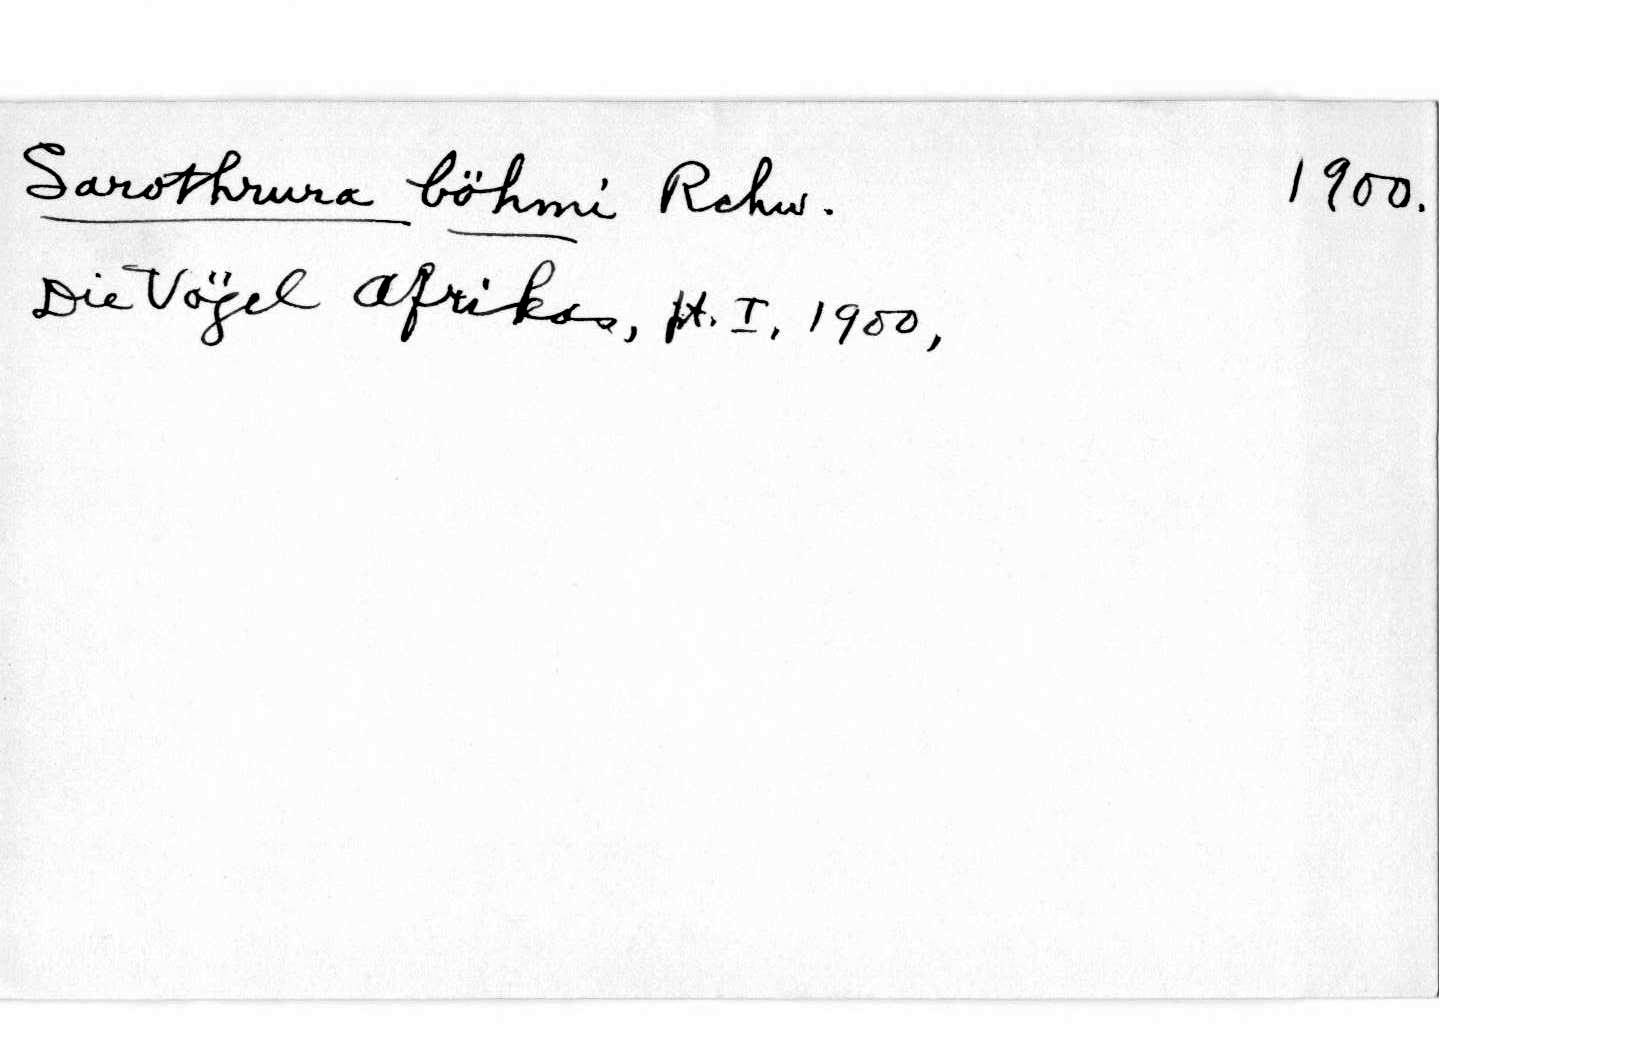 Sarothrura böhmi Rchw. 1900.
Die Vögel Afrikas, pt. I, 1900,